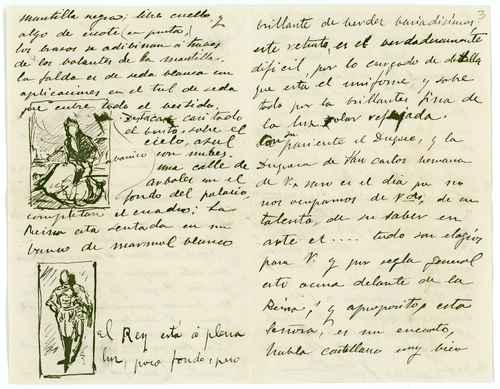 mantilla negra, sin cuello, y
algo de escote (en punta)
los brazos se adivinan á traves
de los volantes de la mantilla.
La falda es de seda blanca con
aplicaciones en el tul de seda
que cubre todo el vestido.
Destaca casi todo
el busto, sobre el
cielo, azul
con nubes.
una calle de
arboles en el
fondo del palacio,
completan el cuadro; La
Reina está sentada en un
banco de marmol blanco
El Rey está á plena
luz, poco fondo, pero
3
brillante de verdes variadisimos
este retrato, es el verdaderamente
dificil, por lo cargado de detalle
que está el uniforme, y sobre
todo por la brillantez, fisica de
la luz solar reflejada.
pariente el Duque, y la
Duquesa de San Carlos hermana
de V, raro es el dia que no
nos ocupamos de Vds, de su
talento, de su saber en
arte et.... todo son elogios
para V. y por regla general
esto acurre delante de la
Reina,! y apropósito, esta
Señora,! es un encanto,
habla castellano muy bien